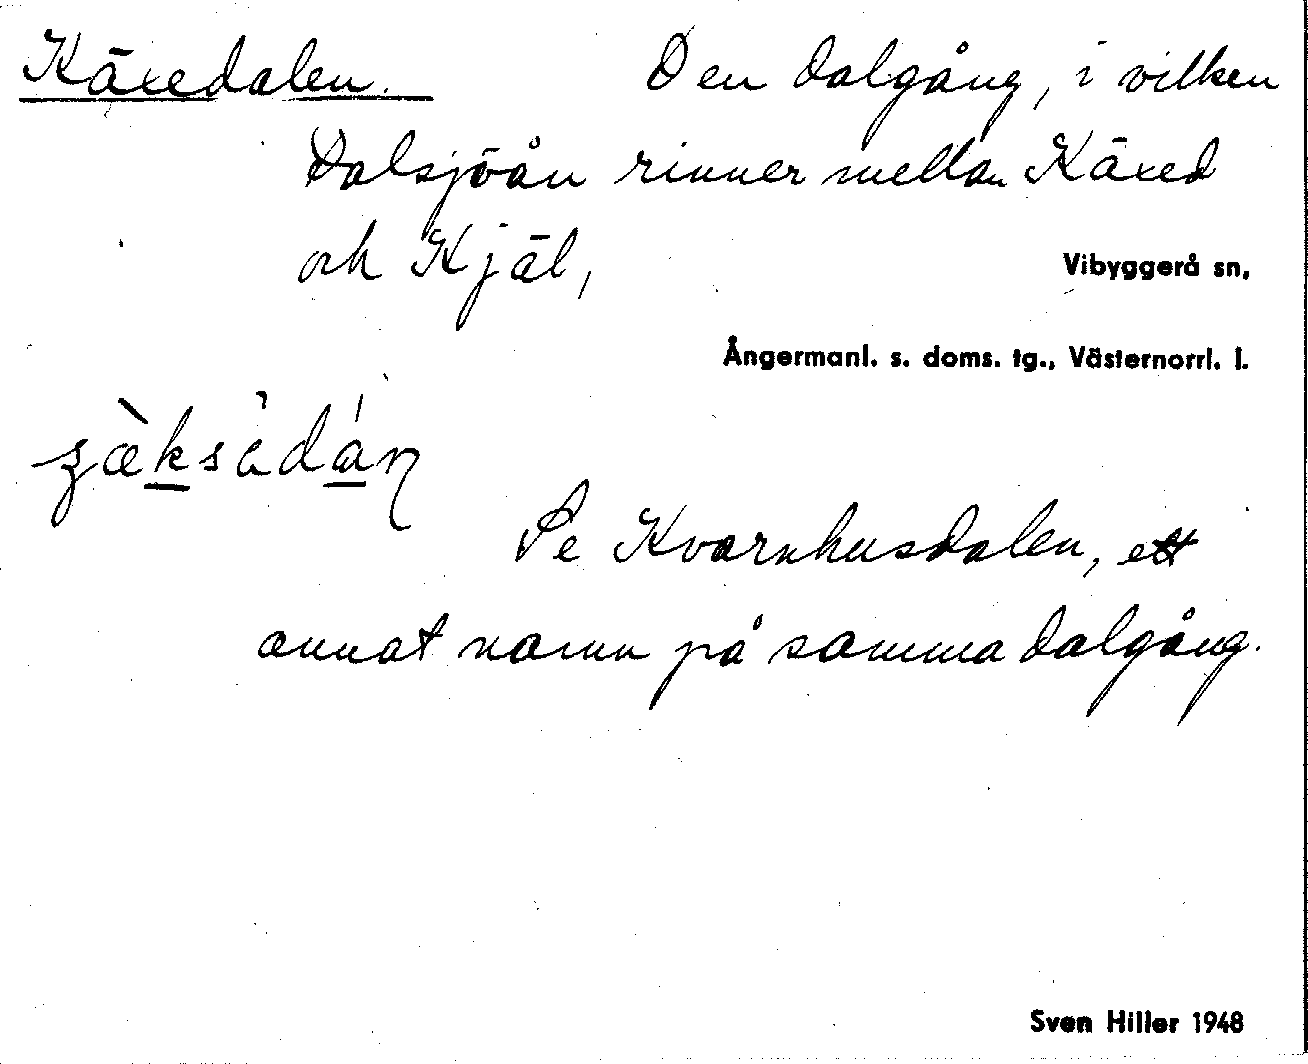 Käxedalen. Den dalgång, i vilken
Dalsjöån rinner mellan Käxed
och Kjäl,
Vibyggerå sn,
Ångermanl. s. doms. tg., Västernorrl. l.
Se Kvarnhusdalen, ett
annat namn på samma dalgång.
Sven Hiller 1948